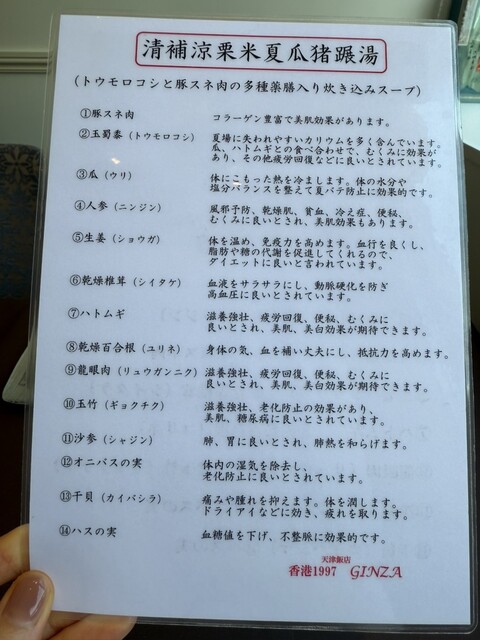 清補涼栗米夏瓜猪蹍湯
(トウモロコシと豚スネ肉の多種薬膳入り炊き込みスープ)
①豚スネ肉 コラーゲン豊富で美肌効果があります。
②玉蜀黍(トウモロコシ) 夏場に失われやすいカリウムを多く含んでいます。
瓜、ハトムギとの食べ合わせで、むくみに効果が
あり、その他疲労回復などに良いとされています。
③瓜(ウリ) 体にこもった熱を冷まします。体の水分や
塩分バランスを整えて夏バテ防止に効果的です。
④人参(ニンジン) 風邪予防、乾燥肌、貧血、冷え症、便秘、
むくみに良いとされ、美肌効果もあります。
⑤生姜(ショウガ) 体を温め、免疫力を高めます。血行を良くし、
脂肪や糖の代謝を促進してくれるので、
ダイエットに良いと言われています。
⑥乾燥椎茸(シイタケ) 血液をサラサラにし、動脈硬化を防ぎ
高血圧に良いとされています。
⑦ハトムギ 滋養強壮、疲労回復、便秘、むくみに
良いとされ、美肌、美白効果が期待できます。
⑧乾燥百合根(ユリネ) 身体の気、血を補い丈夫にし、抵抗力を高めます。
⑨龍眼肉(リュウガンニク) 滋養強壮、疲労回復、便秘、むくみに
良いとされ、美肌、美白効果が期待できます。
⑩玉竹(ギョクチク) 滋養強壮、老化防止の効果があり、
美肌、糖尿病に良いとされています。
⑪沙参(シャジン) 肺、胃に良いとされ、肺熱を和らげます。
⑫オニバスの実 体内の湿気を除去し、
老化防止に良いとされています。
⑬干貝(カイバシラ) 痛みや腫れを抑えます。体を潤します。
ドライアイなどに効き、疲れを取ります。
⑭ハスの実 血糖値を下げ、不整脈に効果的です。
天津飯店
香港1997 GINZA